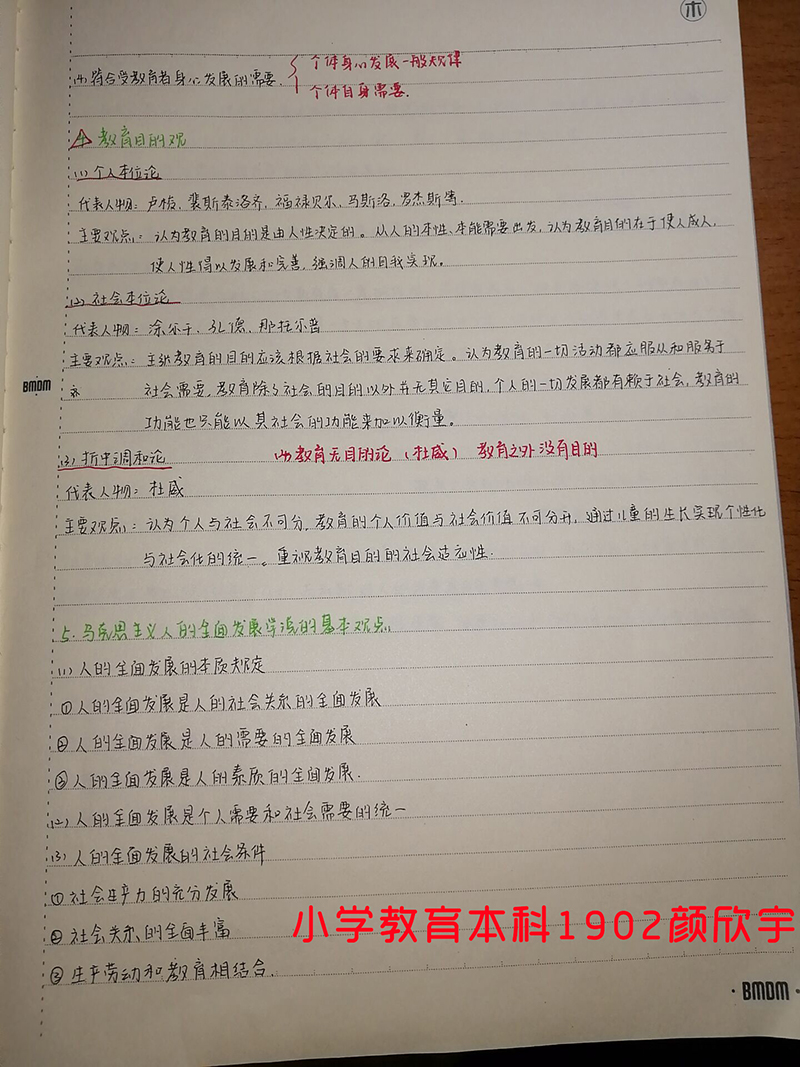 木
个体身心发展一般规律
(4)符合受教育者身心发展的需要.
个体自身需要.
4 教育目的观
(1)个人本位论
代表人物：卢梭，裴斯泰洛齐，福禄贝尔，马斯洛，罗杰斯等.
主要观点：认为教育的目的是由人性决定的。从人的本性、本能需要出发，认为教育目的在于使人成人，
使人性得以发展和完善，强调人的自我实现。
(2)社会本位论
代表人物：涂尔干、孔德，那托尔普
主要观点：主张教育的目的应该根据社会的要求来确定。认为教育的一切活动都应服从和服务于
社会需要，教育除了社会的目的以外并无其它目的，个人的一切发展都有赖于社会，教育的
功能也只能以其社会的功能来加以衡量。
(3)折中调和论 (4)教育无目的论（杜威） 教育之外没有目的
代表人物：杜威
主要观点：认为个人与社会不可分，教育的个人价值与社会价值不可分开，通过儿童的生长实现个性化
与社会化的统一。重视教育目的的社会适应性.
BMDM
5.马克思主义人的全面发展学说的基本观点
(1)人的全面发展的本质规定
①人的全面发展是人的社会关系的全面发展
②人的全面发展是人的需要的全面发展
③人的全面发展是人的素质的全面发展.
(2)人的全面发展是个人需要和社会需要的统一
(3)人的全面发展的社会条件
①社会生产力的充分发展
②社会关系的全面丰富
③生产劳动和教育相结合.
小学教育本科1902颜欣宇
·BMDM·